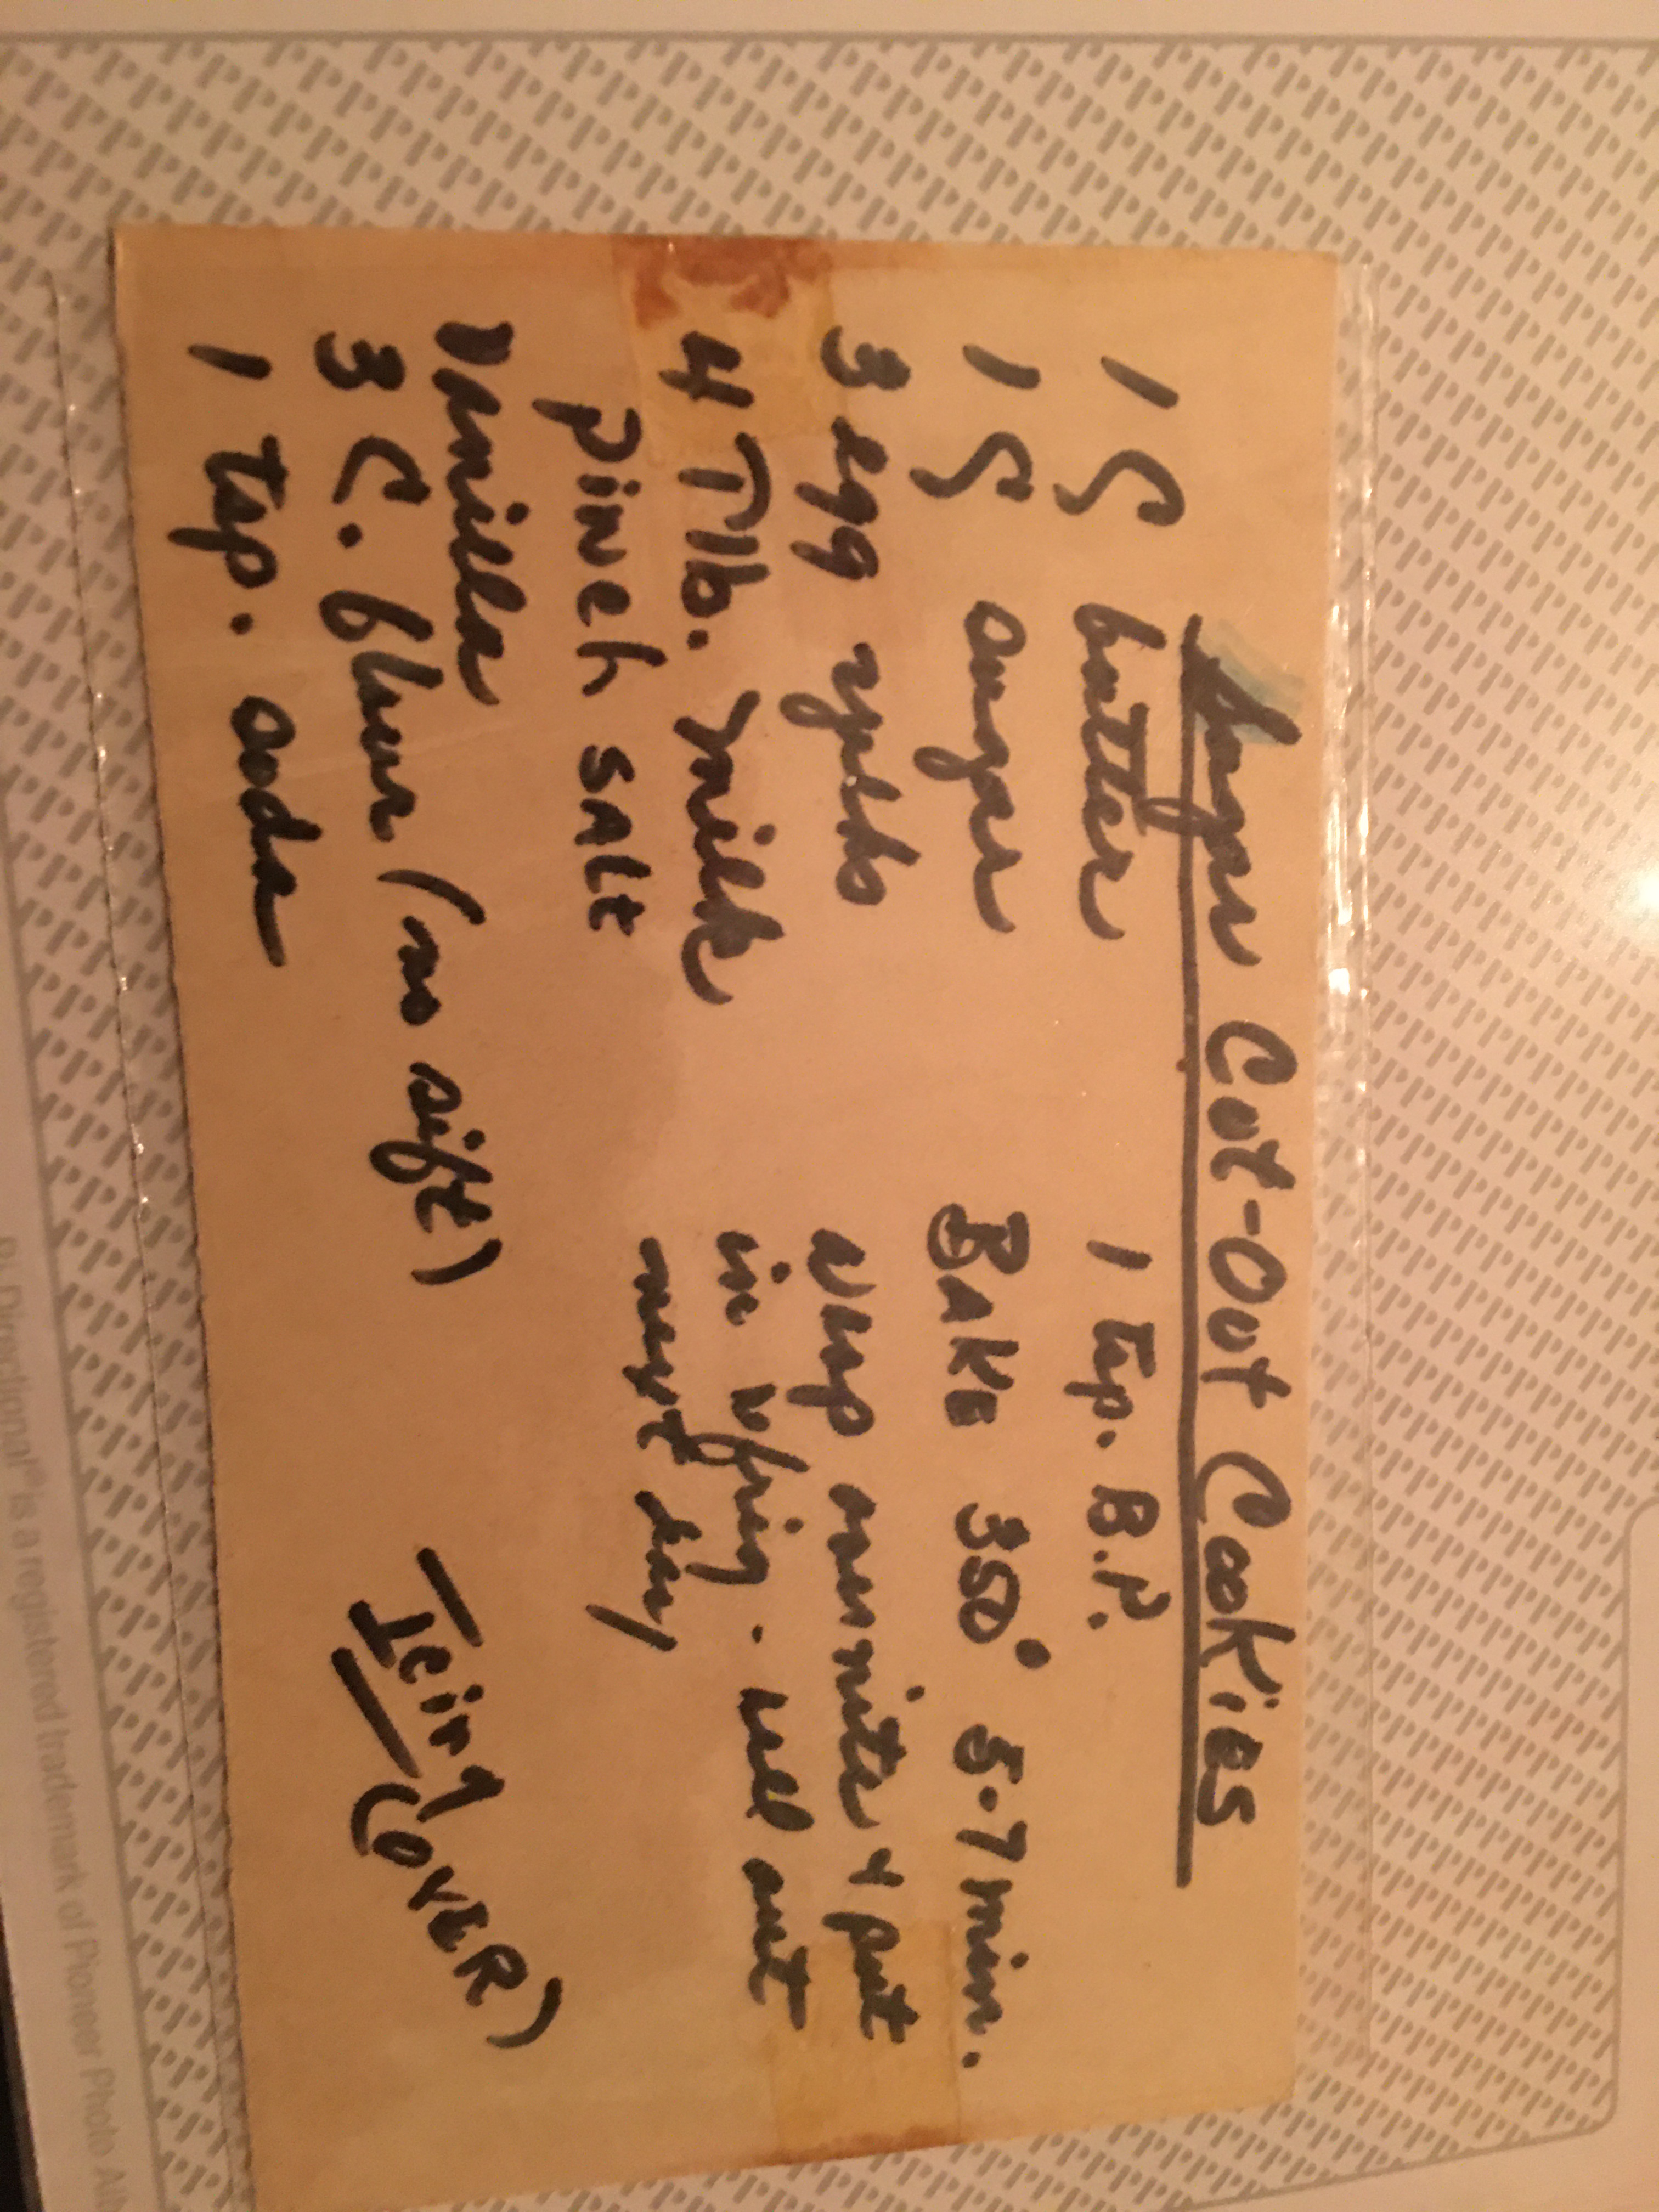 Sugar Cut-Out Cookies
1 C butter
1 C sugar
3 egg yolks
4 Tlb. milk
pinch SALt
VAnilla
3 C. flour (no sift)
1 tsp. soda
1 tsp. B.P.
BAKE 350° 5-7 min.
Wrap our nite & put
in refrig. roll out
next day
Icing (OVER)
Bi-Directional® is a registered trademark of Pioneer Photo Alb